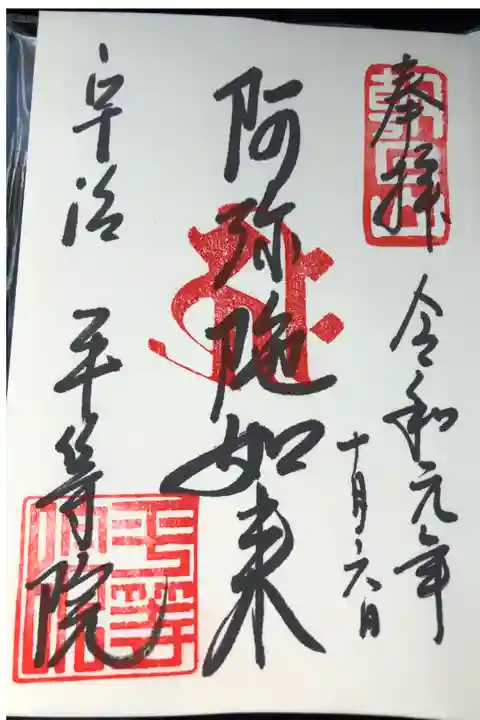 奉拝
令和元年
十月六日
阿弥陀如来
宇治 平等院
朝日山
平等院